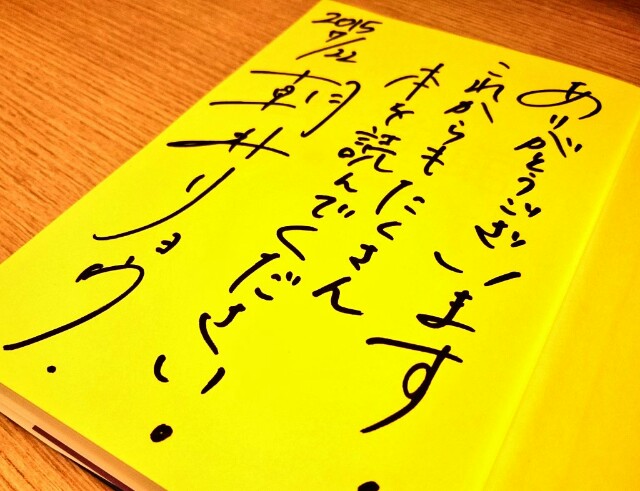 ありがとうございます。
これからもたくさん
本を読んでください。
朝井リョウ.
2015
7/22